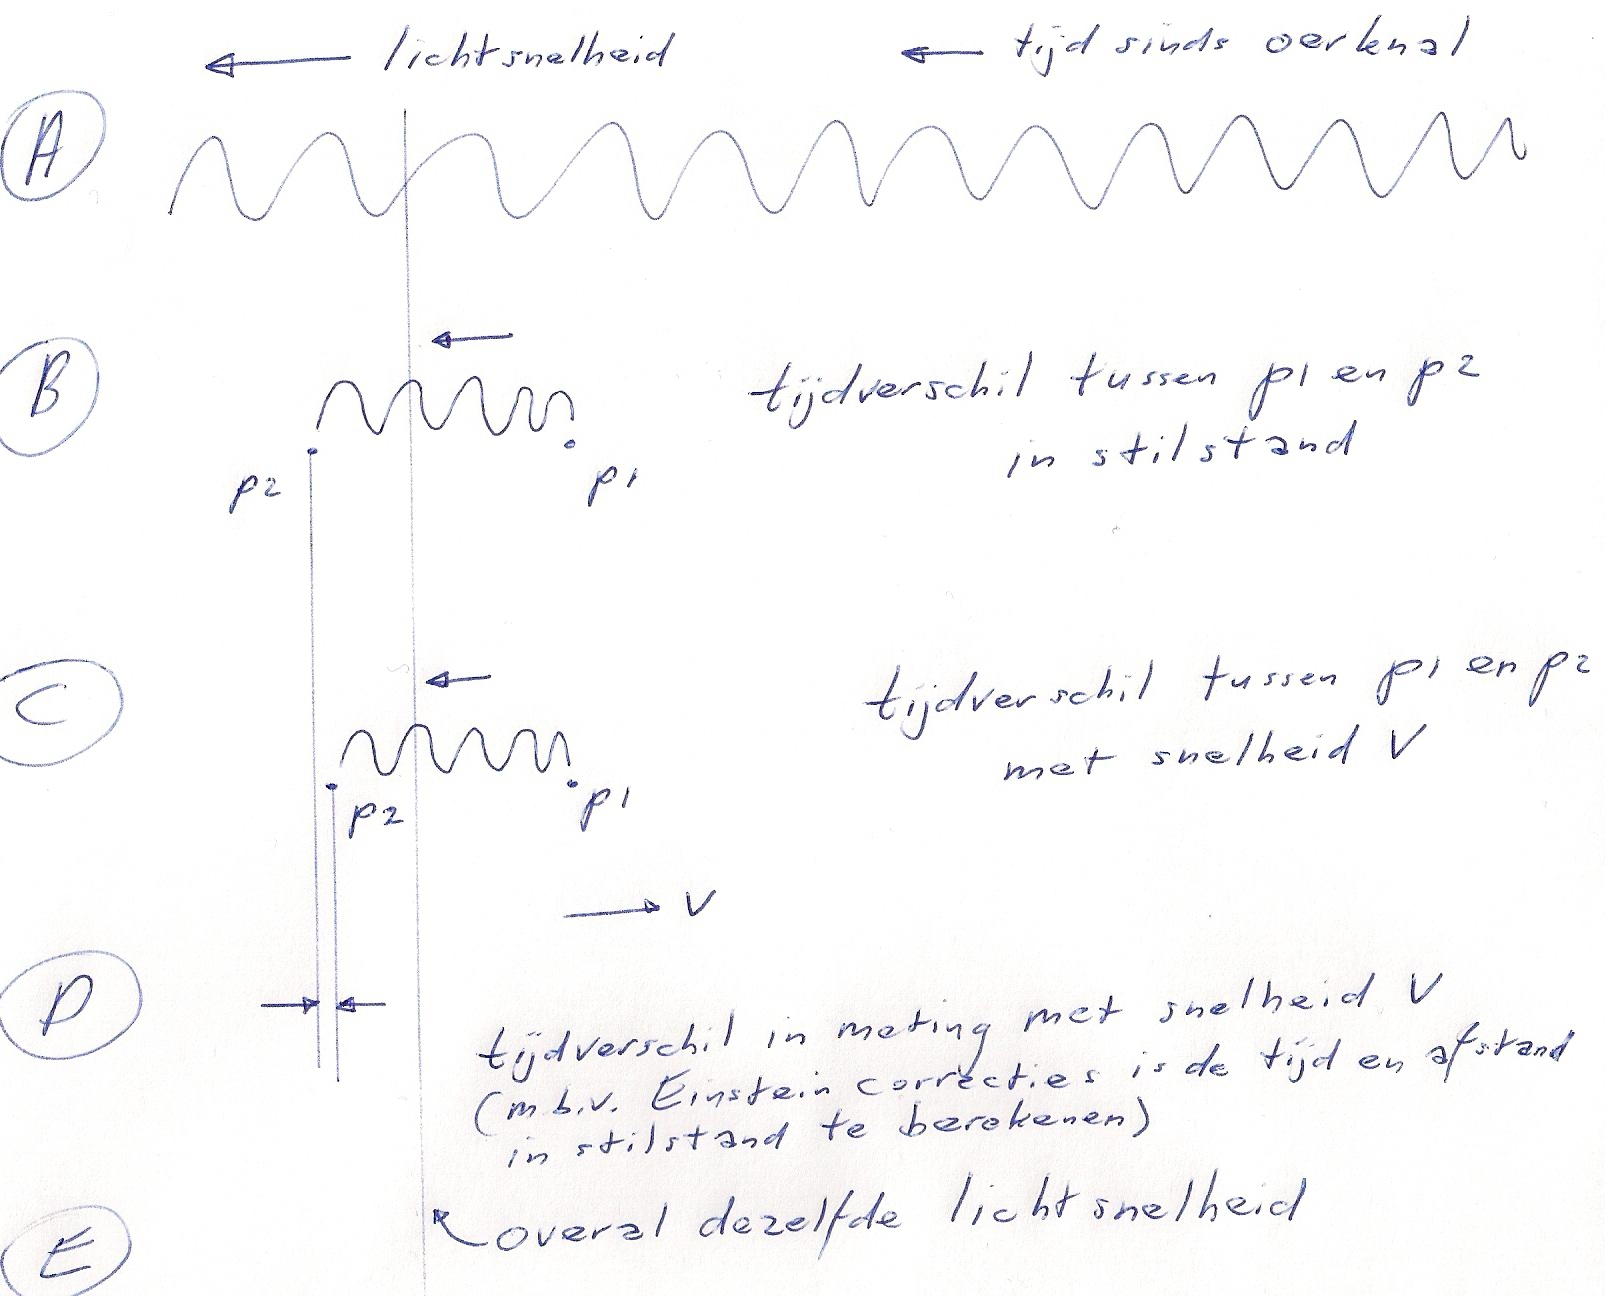 lichtsnelheid
tijd sinds oerknal
A
B
tijdverschil tussen p1 en p2
in stilstand
p2
p1
C
tijdverschil tussen p1 en p2
met snelheid V
p2
p1
V
D
tijdverschil in meting met snelheid V
(m.b.v. Einstein correcties is de tijd en afstand
in stilstand te berekenen)
E
overal dezelfde lichtsnelheid